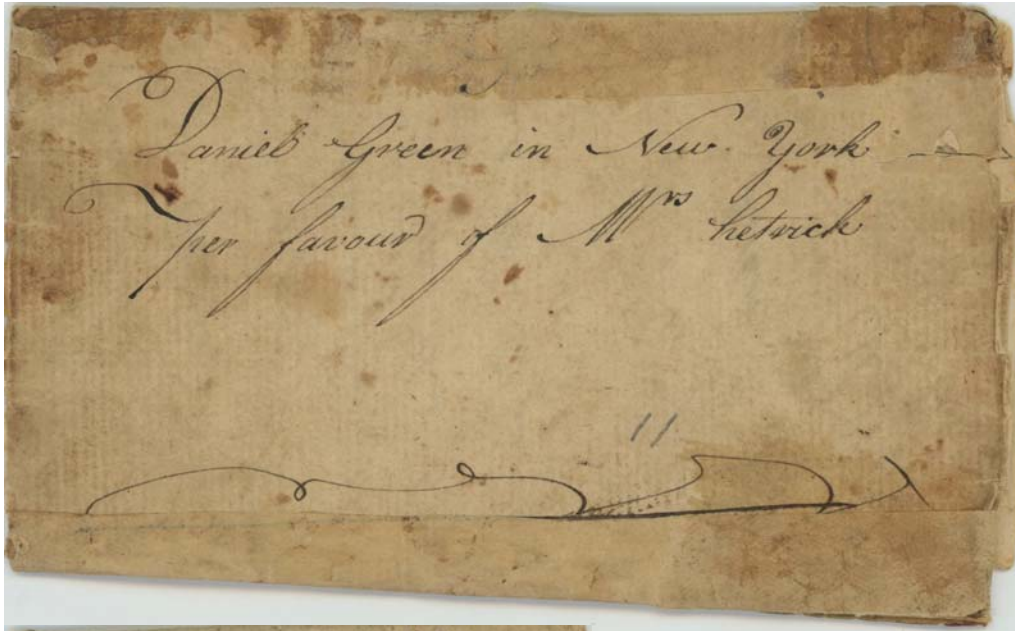 Daniel Green in New York
per favour of Mrs hetrick
11